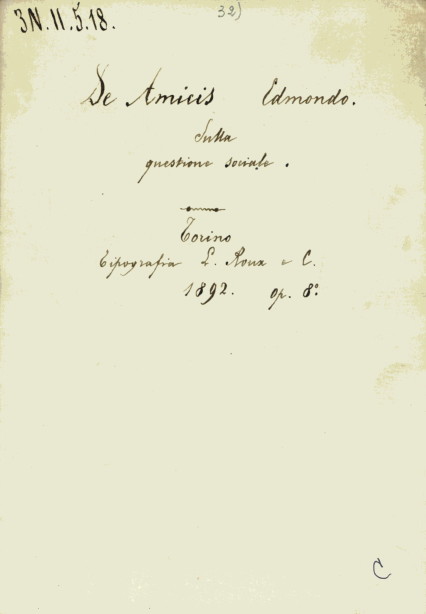 3N.II.5.18.
32)
De Amicis Edmondo.
Sulla
questione sociale.
Torino
Tipografia L. Roux e C.
1892. op. 8°
C